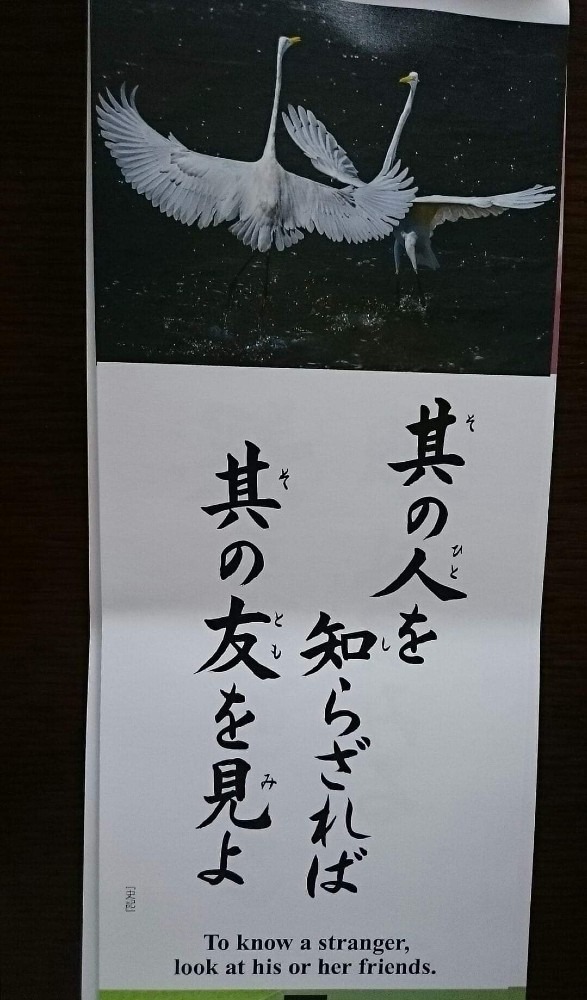 其の人を
知らざれば
其の友を見よ
［史記］
To know a stranger,
look at his or her friends.